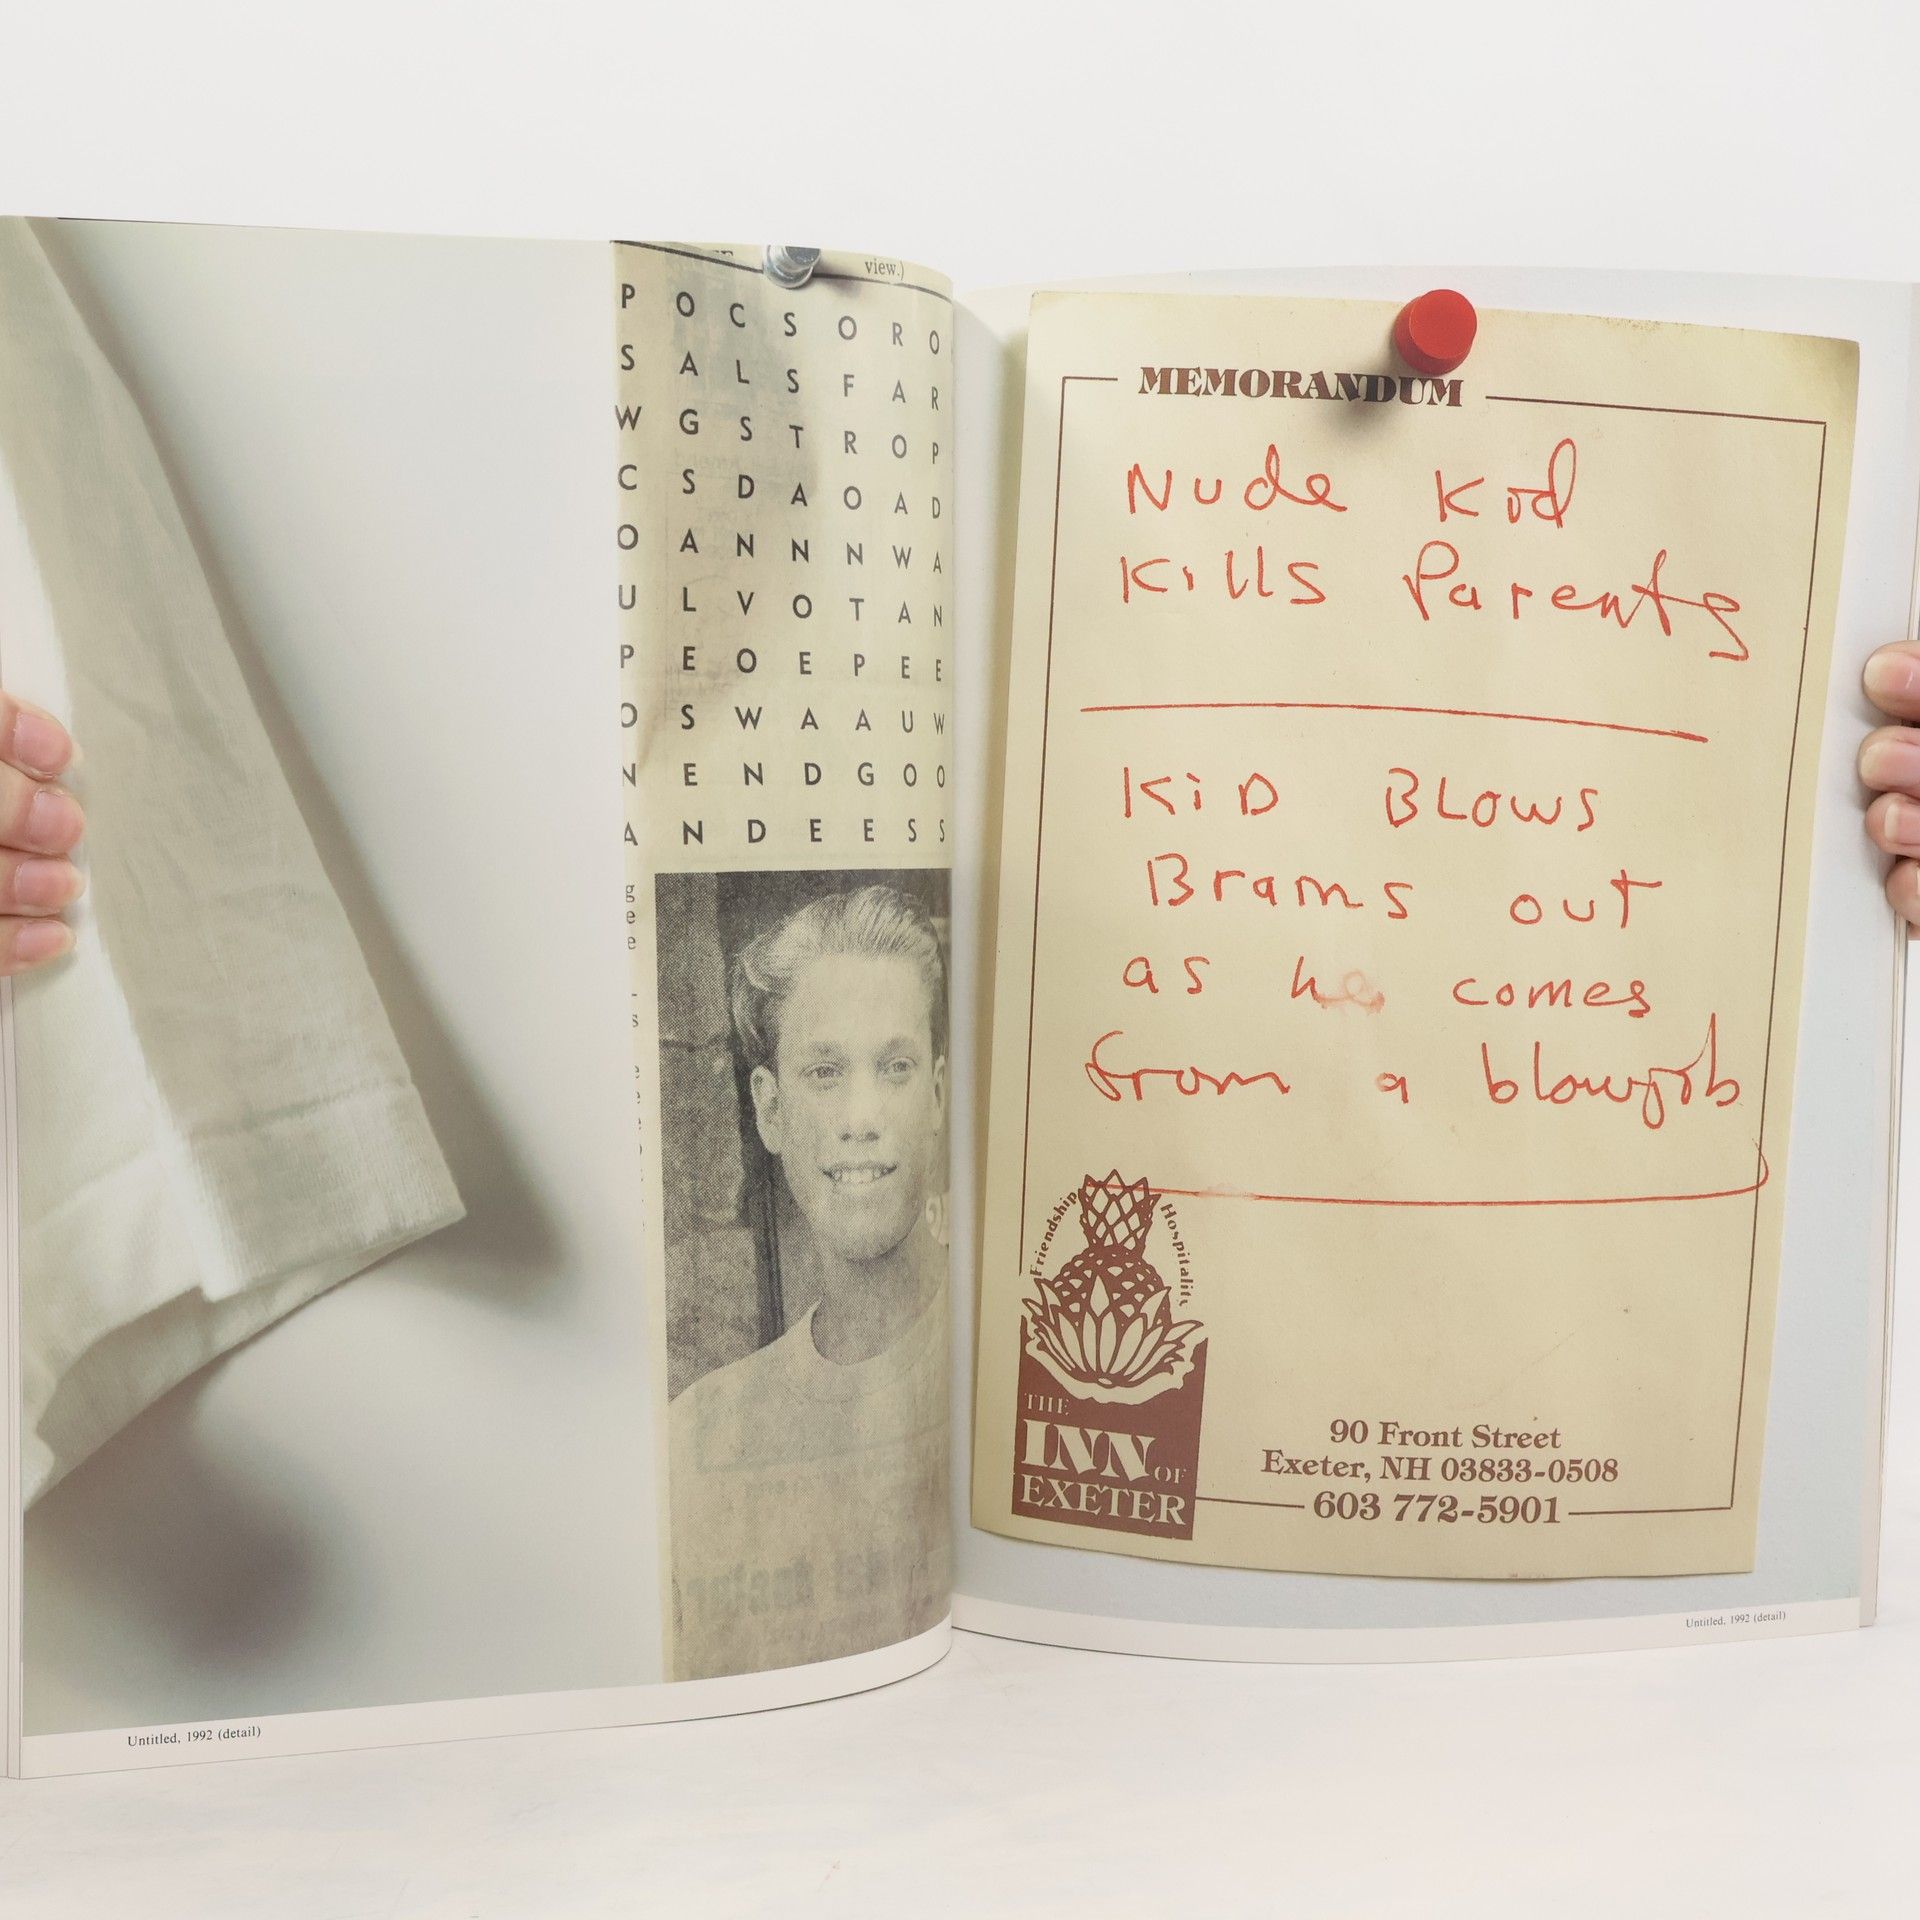 view.)
P O C S O R O
S A L S F A R
W G S T R O P
C S D A O A D
O A N N N W A
U L V O T A N
P E O E P E E
O S W A A U W
N E N D G O O
A N D E E S S
g
e
e
s
Untitled, 1992 (detail)
MEMORANDUM
Nude Kid
Kills Parents
KiD BLOWS
Brains out
as he comes
from a blowjob
Friendship Hospitality
THE
INN OF
EXETER
90 Front Street
Exeter, NH 03833-0508
603 772-5901
Untitled, 1992 (detail)